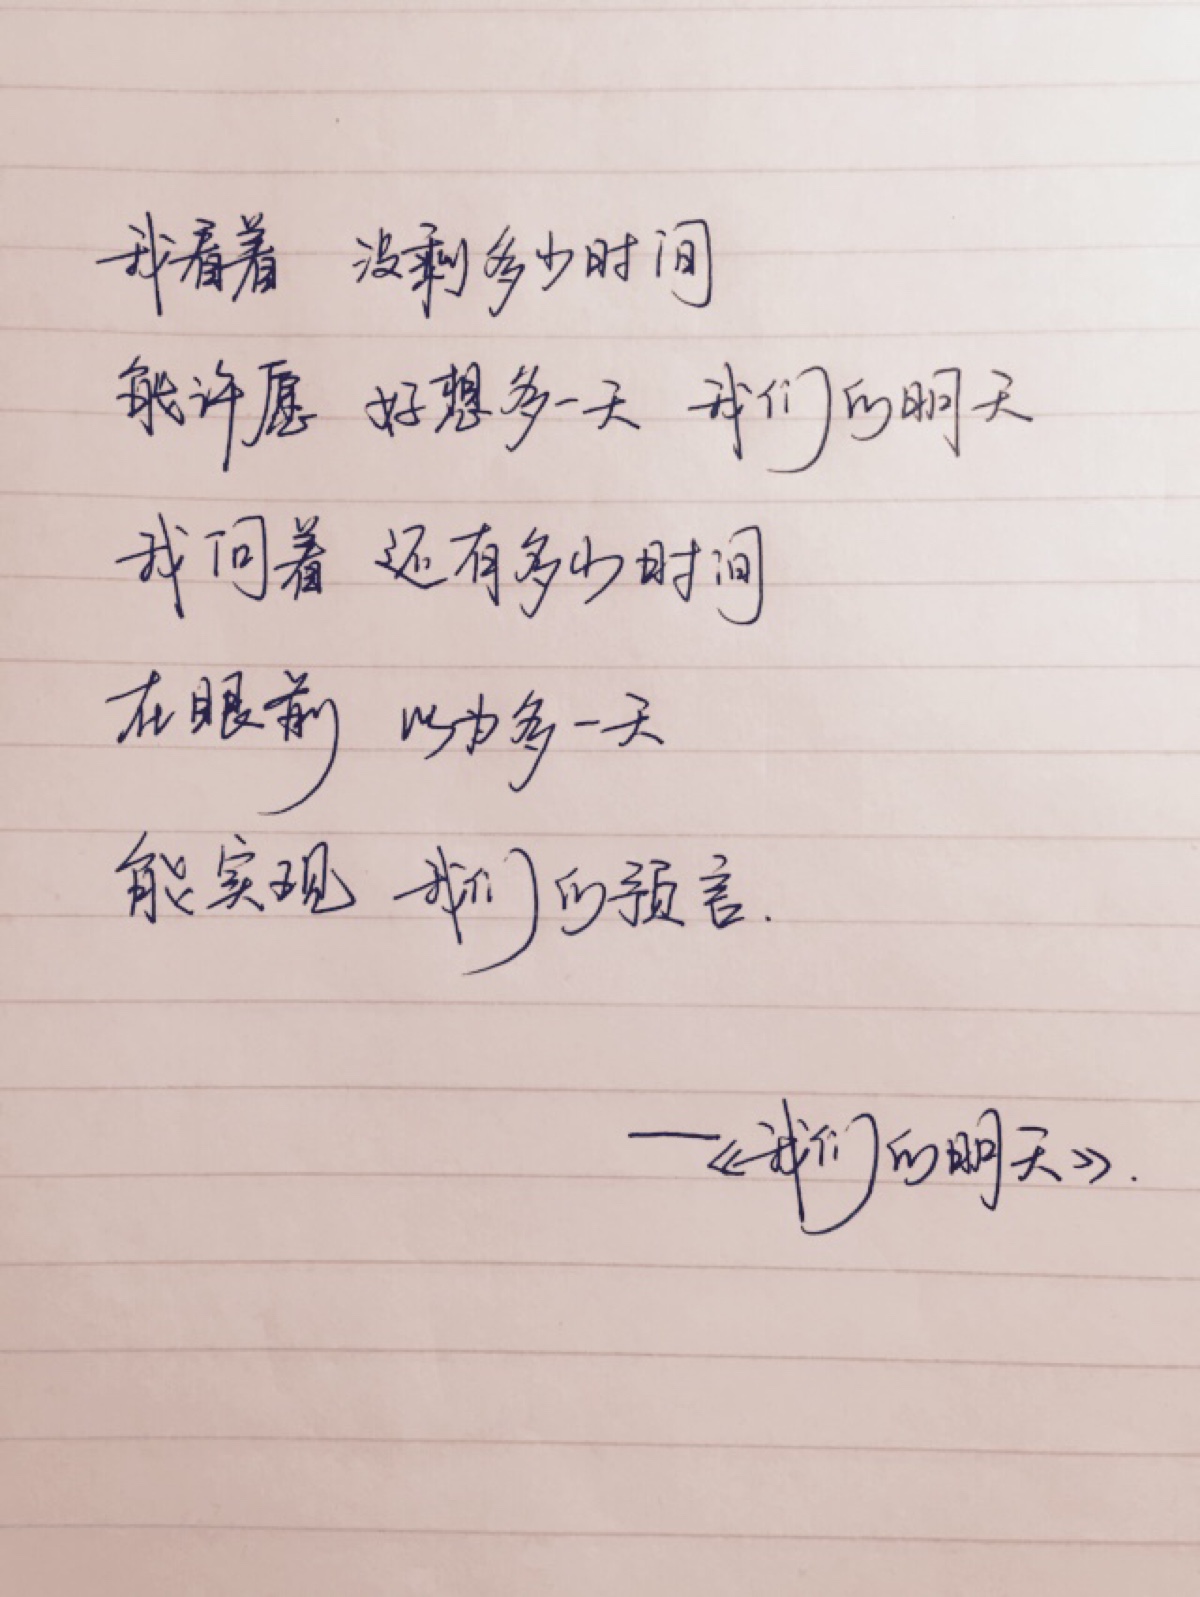 我看着 没剩多少时间
能许愿 好想多一天 我们的明天
我问着 还有多少时间
在眼前 以为多一天
能实现 我们的预言.
——《我们的明天》.